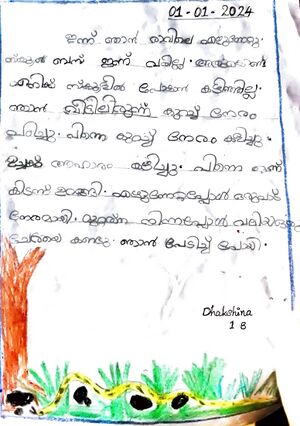 01-01-2024
ഇന്ന് ഞാൻ രാവിലെ എഴുന്നേറ്റു.
സ്കൂൾ ബസ് ഇന്ന് വന്നില്ല. അതുകൊണ്ട്
എനിക്ക് സ്കൂളിൽ പോകാൻ കഴിഞ്ഞില്ല.
ഞാൻ വീട്ടിലിരുന്ന് കുറച്ച് നേരം
പഠിച്ചു. പിന്നെ കുറച്ച് നേരം കളിച്ചു.
ഉച്ചക്ക് ആഹാരം കഴിച്ചു. പിന്നെ
കിടന്ന് ഉറങ്ങി. എഴുന്നേറ്റപ്പോൾ ഒരുപാട്
നേരമായി. മുറ്റത്ത്
ചേരയെ കണ്ടു. ഞാൻ പേടിച്ച് പോയി.
Dhakshina
1 B